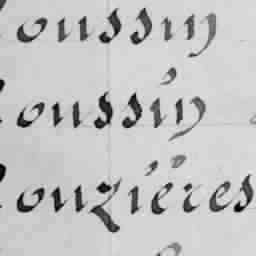 oussin
oussin
ouzières